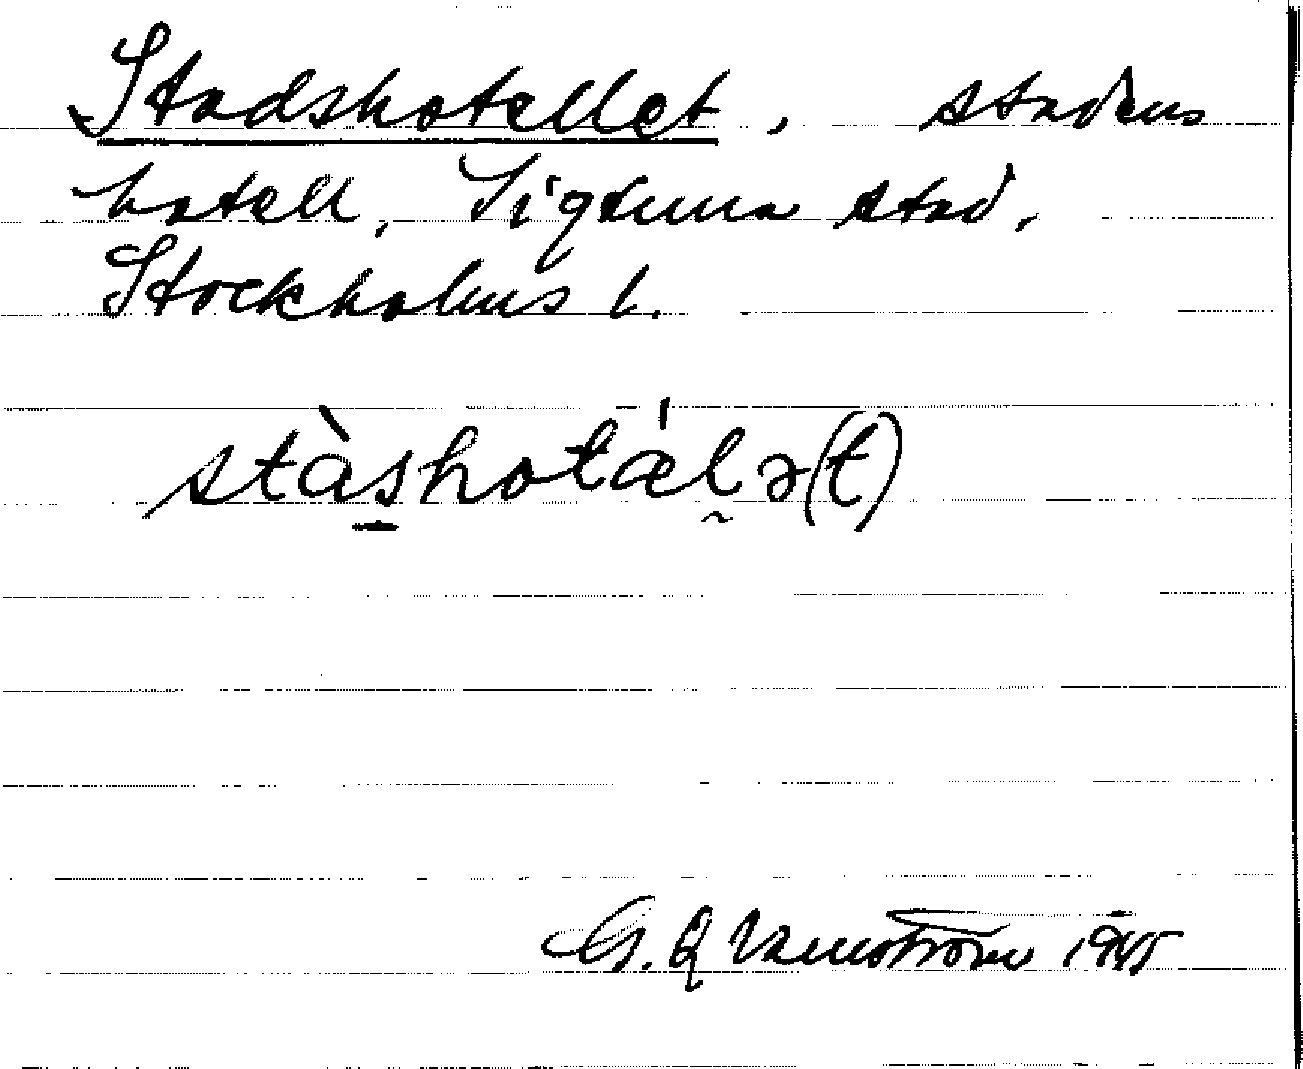 Stadshotellet, stadens
hotell, Sigtuna stad,
Stockholms l.
stàshotǽlə(t)
G. A Vannström 1945